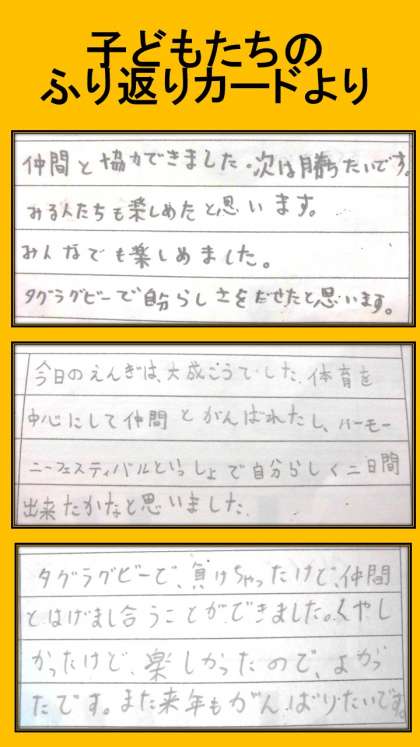 子どもたちの
ふり返りカードより
仲間と協力できました。次は勝ちたいです。
みる人たちも楽しめたと思います。
みんなでも楽しめました。
タグラグビーで自分らしさをだせたと思います。
今日のえんぎは、大成こうでした。体育を
中心にして仲間とがんばれたし、ハーモー
ニーフェスティバルといっしょで自分らしく二日間
出来たかなと思いました。
タグラグビーで、負けちゃったけど、仲間
とはげまし合うことができました。くやし
かったけど、楽しかったので、よかっ
たです。また来年もがんばりたいです。